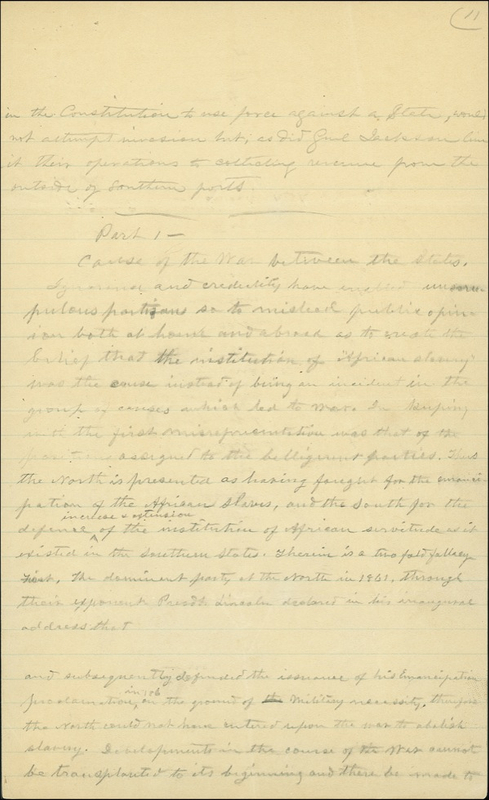 11
in the Constitution to use force against a State, would
not attempt invasion but, as did Genl Jackson lim
it their operations to collecting revenue from the
outside of Southern ports
Part 1 —
Cause of the War between the States.
Ignorance and credulity have enabled unscru-
pulous partisans so to mislead public opin
ion both at home and abroad as to create the
belief that the institution of African slavery
was the cause instead of being an incident in the
group of causes which led to war. In keeping
with the first misrepresentation was that of the
assigned to the belligerent parties. Thus
the North is presented as having fought for the emanci-
pation of the African Slaves, and the South for the
increase & extension
defence of the institution of African servitude as it
existed in the Southern States. Therein is a two fold fallacy
First, The dominant party at the North in 1861, through
their exponent Presdt. Lincoln declared in his inaugural
address that
and subsequently defended the issuance of his Emancipation
in 186
proclamation, on the ground of Military necessity, therefore
the North could not have entered upon the war to abolish
slavery. Developments in the course of the War cannot
be transplanted to its beginning and there be made to